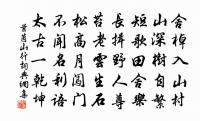 舍棹入山村
山深樹自繁
短歌田舍樂
長嘯野人尊
苔老雲生石
松高月門
不聞名利語
太古一乾坤
葉茵山行詞典網集